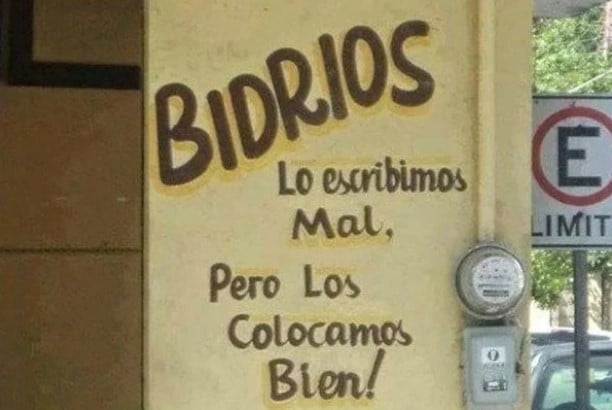 BIDRIOS
Lo escribimos
Mal,
Pero Los
Colocamos
Bien!
E
LIMIT